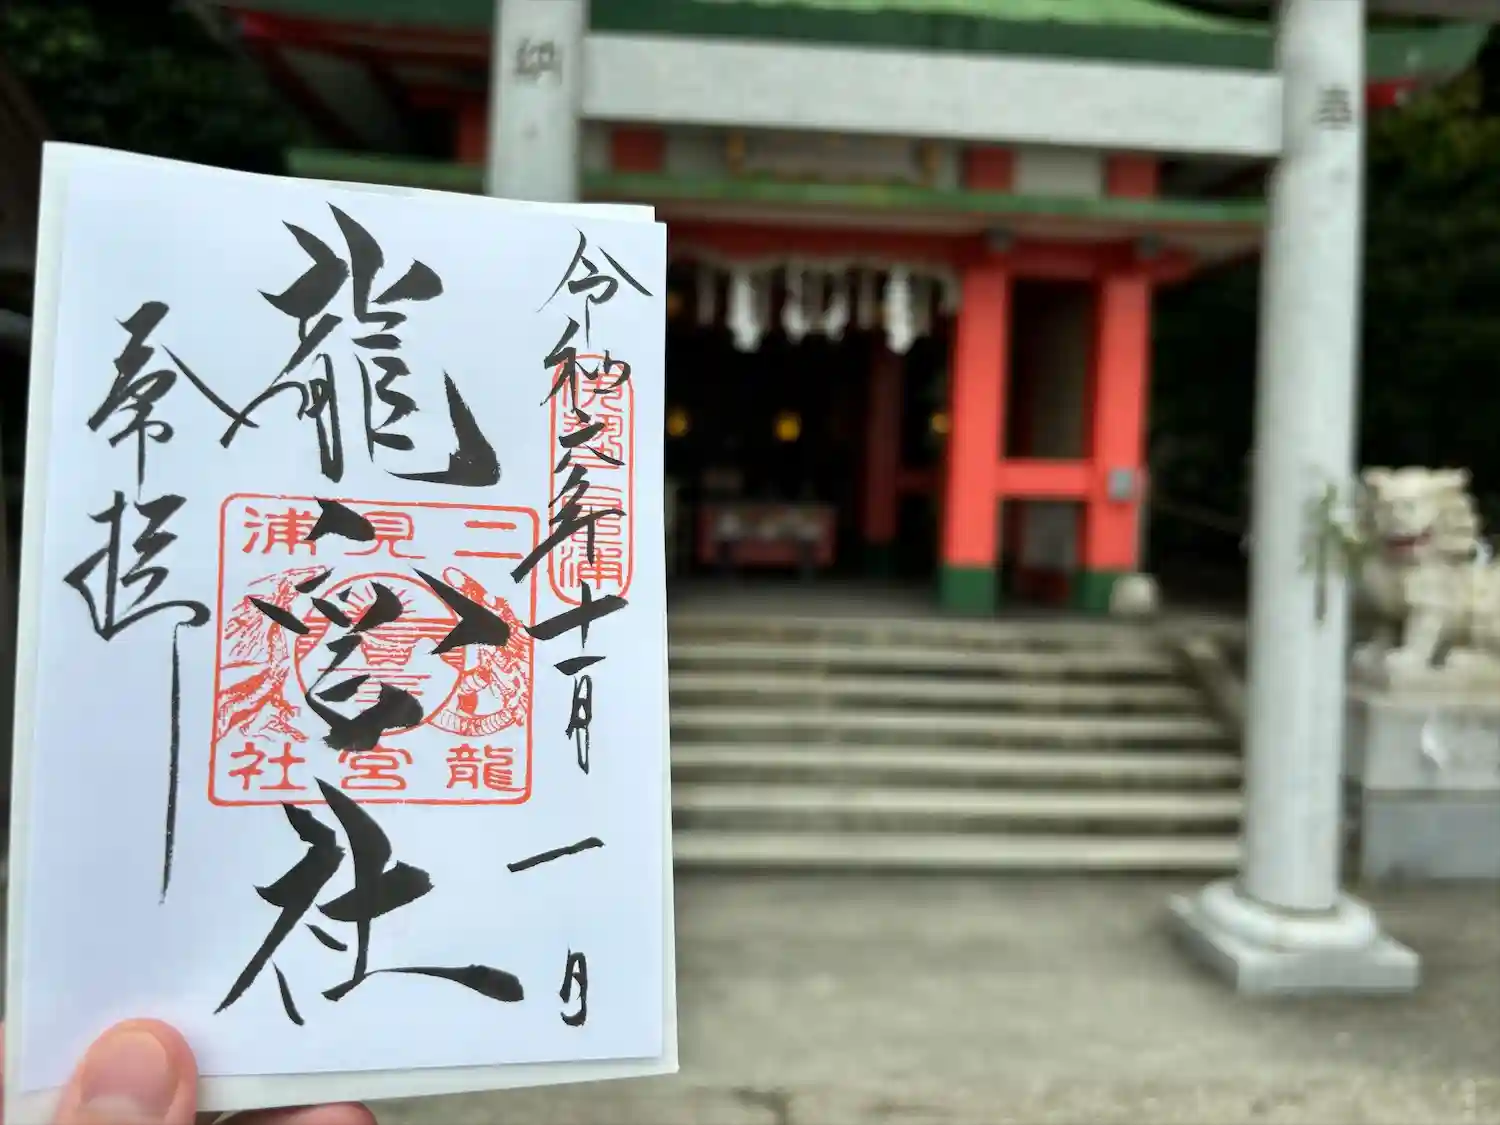 令和六年十一月一日
伊勢二見浦
龍宮社
二見浦
龍宮社
奉拝
奉
納